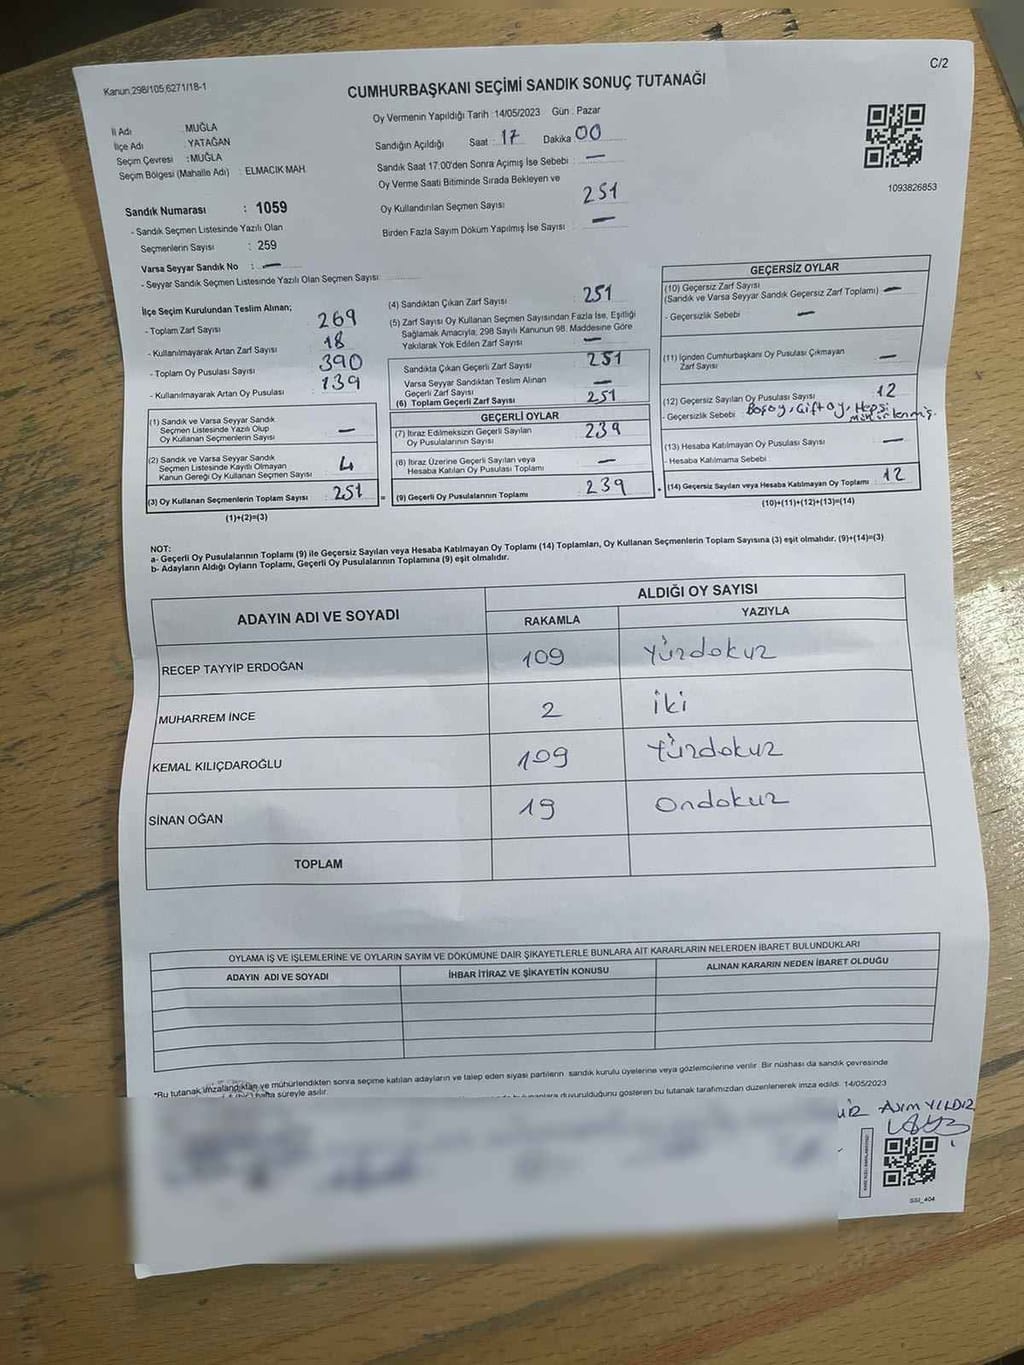 C/2
Kanun:298/105,6271/18-1
CUMHURBAŞKANI SEÇİMİ SANDIK SONUÇ TUTANAĞI
Oy Vermenin Yapıldığı Tarih :14/05/2023 Gün : Pazar
İl Adı : MUĞLA
İlçe Adı : YATAĞAN
Seçim Çevresi : MUĞLA
Seçim Bölgesi (Mahalle Adı) : ELMACIK MAH
Sandığın Açıldığı Saat : 17 Dakika 00
Sandık Saat 17.00'den Sonra Açımış İse Sebebi : —
Oy Verme Saati Bitiminde Sırada Bekleyen ve
Oy Kullandırılan Seçmen Sayısı 251
Birden Fazla Sayım Döküm Yapılmış İse Sayısı : —
1093826853
Sandık Numarası : 1059
- Sandık Seçmen Listesinde Yazılı Olan
Seçmenlerin Sayısı : 259
Varsa Seyyar Sandık No : —
- Seyyar Sandık Seçmen Listesinde Yazılı Olan Seçmen Sayısı:
İlçe Seçim Kurulundan Teslim Alınan;
- Toplam Zarf Sayısı 269
- Kullanılmayarak Artan Zarf Sayısı 18
- Toplam Oy Pusulası Sayısı 390
- Kullanılmayarak Artan Oy Pusulası 139
(1) Sandık ve Varsa Seyyar Sandık
Seçmen Listesinde Yazılı Olup
Oy Kullanan Seçmenlerin Sayısı —
(2) Sandık ve Varsa Seyyar Sandık
Seçmen Listesinde Kayıtlı Olmayan
Kanun Gereği Oy Kullanan Seçmen Sayısı 4
(3) Oy Kullanan Seçmenlerin Toplam Sayısı : 251 =
(1)+(2)=(3)
(4) Sandıktan Çıkan Zarf Sayısı 251
(5) Zarf Sayısı Oy Kullanan Seçmen Sayısından Fazla İse, Eşitliği
Sağlamak Amacıyla, 298 Sayılı Kanunun 98. Maddesine Göre
Yakılarak Yok Edilen Zarf Sayısı —
Sandıkta Çıkan Geçerli Zarf Sayısı 251
Varsa Seyyar Sandıktan Teslim Alınan
Geçerli Zarf Sayısı —
(6) Toplam Geçerli Zarf Sayısı 251
GEÇERLİ OYLAR
(7) İtiraz Edilmeksizin Geçerli Sayılan
Oy Pusulalarının Sayısı 239
(8) İtiraz Üzerine Geçerli Sayılan veya
Hesaba Katılan Oy Pusulası Toplamı —
(9) Geçerli Oy Pusulalarının Toplamı 239
GEÇERSİZ OYLAR
(10) Geçersiz Zarf Sayısı
(Sandık ve Varsa Seyyar Sandık Geçersiz Zarf Toplamı) —
- Geçersizlik Sebebi —
(11) İçinden Cumhurbaşkanı Oy Pusulası Çıkmayan
Zarf Sayısı —
(12) Geçersiz Sayılan Oy Pusulası Sayısı 12
- Geçersizlik Sebebi Boş oy, Çift oy, Hepsi
mühürlenmiş.
(13) Hesaba Katılmayan Oy Pusulası Sayısı —
- Hesaba Katılmama Sebebi
(14) Geçersiz Sayılan veya Hesaba Katılmayan Oy Toplamı 12
(10)+(11)+(12)+(13)=(14)
NOT:
a- Geçerli Oy Pusulalarının Toplamı (9) ile Geçersiz Sayılan veya Hesaba Katılmayan Oy Toplamı (14) Toplamları, Oy Kullanan Seçmenlerin Toplam Sayısına (3) eşit olmalıdır. (9)+(14)=(3)
b- Adayların Aldığı Oyların Toplamı, Geçerli Oy Pusulalarının Toplamına (9) eşit olmalıdır.
ADAYIN ADI VE SOYADI
ALDIĞI OY SAYISI
RAKAMLA YAZIYLA
RECEP TAYYİP ERDOĞAN 109 Yüzdokuz
MUHARREM İNCE 2 iki
KEMAL KILIÇDAROĞLU 109 Yüzdokuz
SİNAN OĞAN 19 Ondokuz
TOPLAM
OYLAMA İŞ VE İŞLEMLERİNE VE OYLARIN SAYIM VE DÖKÜMÜNE DAİR ŞİKAYETLERLE BUNLARA AİT KARARLARIN NELERDEN İBARET BULUNDUKLARI
ADAYIN ADI VE SOYADI İHBAR İTİRAZ VE ŞİKAYETİN KONUSU ALINAN KARARIN NEDEN İBARET OLDUĞU
*Bu tutanak imzalandıktan ve mühürlendikten sonra seçime katılan adayların ve talep eden siyasi partilerin sandık kurulu üyelerine ve gözlemcilerine verilir. Bir nüshası da sandık çevresinde
hafta süreyle asılır.
duyurulduğunu gösteren bu tutanak tarafımızdan düzenlenerek imza edildi. 14/05/2023
Asım YILDIZ
SSI_404